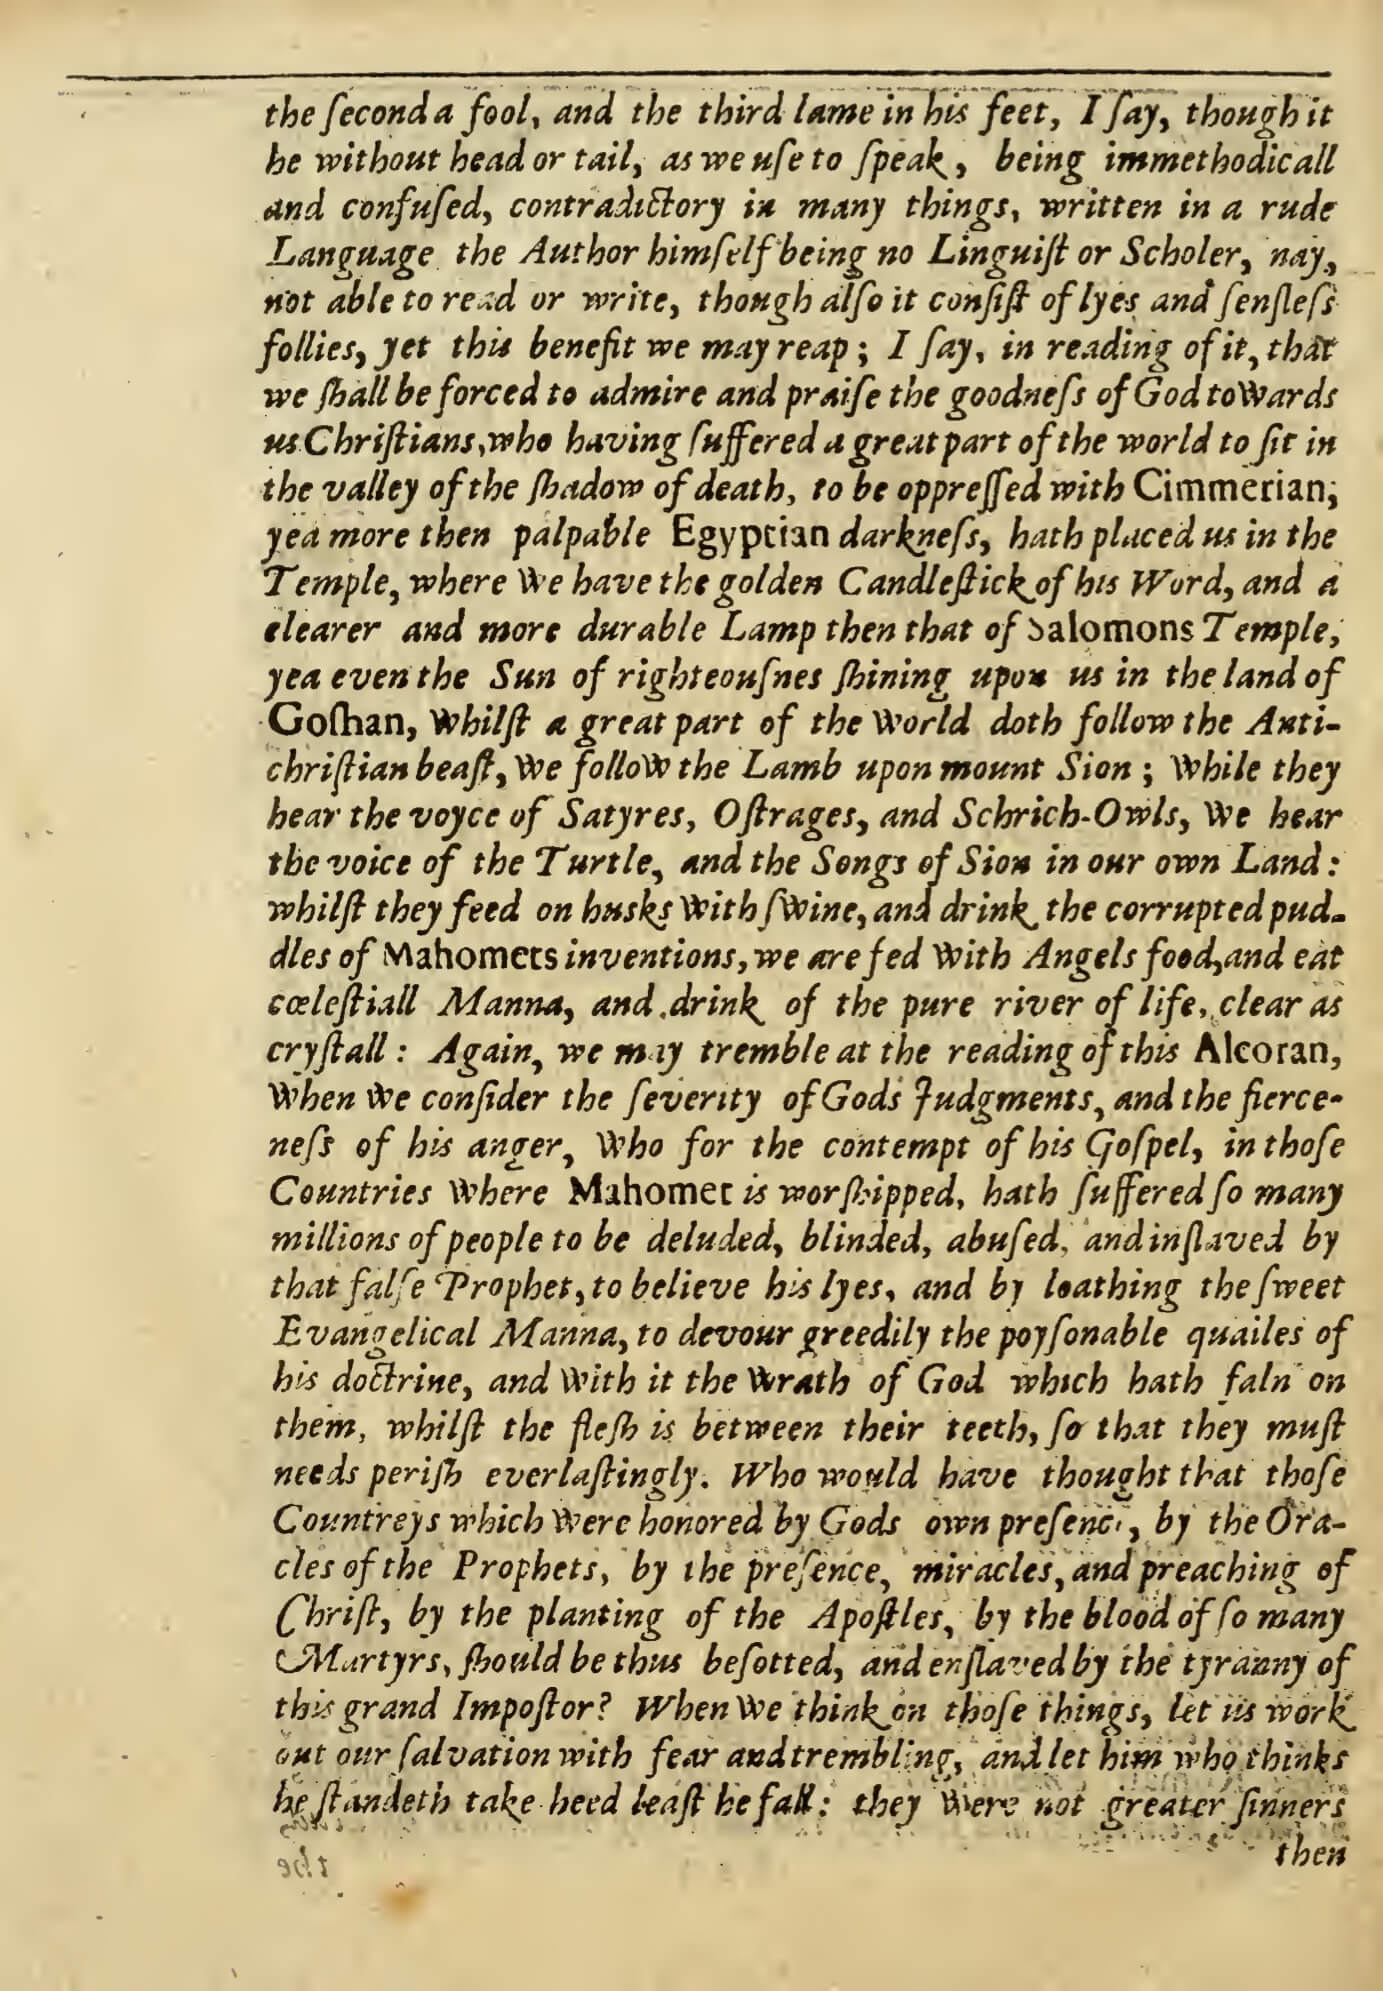 the ſecond a fool, and the third lame in his feet, I ſay, though it
be without head or tail, as we uſe to ſpeak, being immethodicall
and confuſed, contradictory in many things, written in a rude
Language the Author himſelf being no Linguiſt or Scholer, nay,
not able to read or write, though alſo it conſiſt of lyes and ſenſleſs
follies, yet this benefit we may reap; I ſay, in reading of it, that
we ſhall be forced to admire and praiſe the goodneſs of God towards
us Chriſtians, who having ſuffered a great part of the world to ſit in
the valley of the ſhadow of death, to be oppreſſed with Cimmerian,
yea more then palpable Egyptian darkneſs, hath placed us in the
Temple, where we have the golden Candleſtick of his Word, and a
clearer and more durable Lamp then that of Salomons Temple,
yea even the Sun of righteouſnes ſhining upon us in the land of
Goſhan, whilſt a great part of the world doth follow the Anti-
chriſtian beaſt, we follow the Lamb upon mount Sion; while they
hear the voyce of Satyres, Oſtrages, and Schrich-Owls, we hear
the voice of the Turtle, and the Songs of Sion in our own Land:
whilſt they feed on husks with ſwine, and drink the corrupted pud-
dles of Mahomets inventions, we are fed with Angels food, and eat
cœleſtiall Manna, and drink of the pure river of life, clear as
cryſtall: Again, we may tremble at the reading of this Alcoran,
when we conſider the ſeverity of Gods Judgments, and the fierce-
neſs of his anger, who for the contempt of his Goſpel, in thoſe
Countries where Mahomet is worſhipped, hath ſuffered ſo many
millions of people to be deluded, blinded, abuſed, and inſlaved by
that falſe Prophet, to believe his lyes, and by loathing the ſweet
Evangelical Manna, to devour greedily the poyſonable quailes of
his doctrine, and with it the wrath of God which hath faln on
them, whilſt the fleſh is between their teeth, ſo that they muſt
needs periſh everlaſtingly. Who would have thought that thoſe
Countreys which were honored by Gods own preſence, by the Ora-
cles of the Prophets, by the preſence, miracles, and preaching of
Chriſt, by the planting of the Apoſtles, by the blood of ſo many
Martyrs, ſhould be thus beſotted, and enſlaved by the tyranny of
this grand Impoſtor? When we think on thoſe things, let us work
out our ſalvation with fear and trembling, and let him who thinks
he ſtandeth take heed leaſt he fall: they were not greater ſinners
then